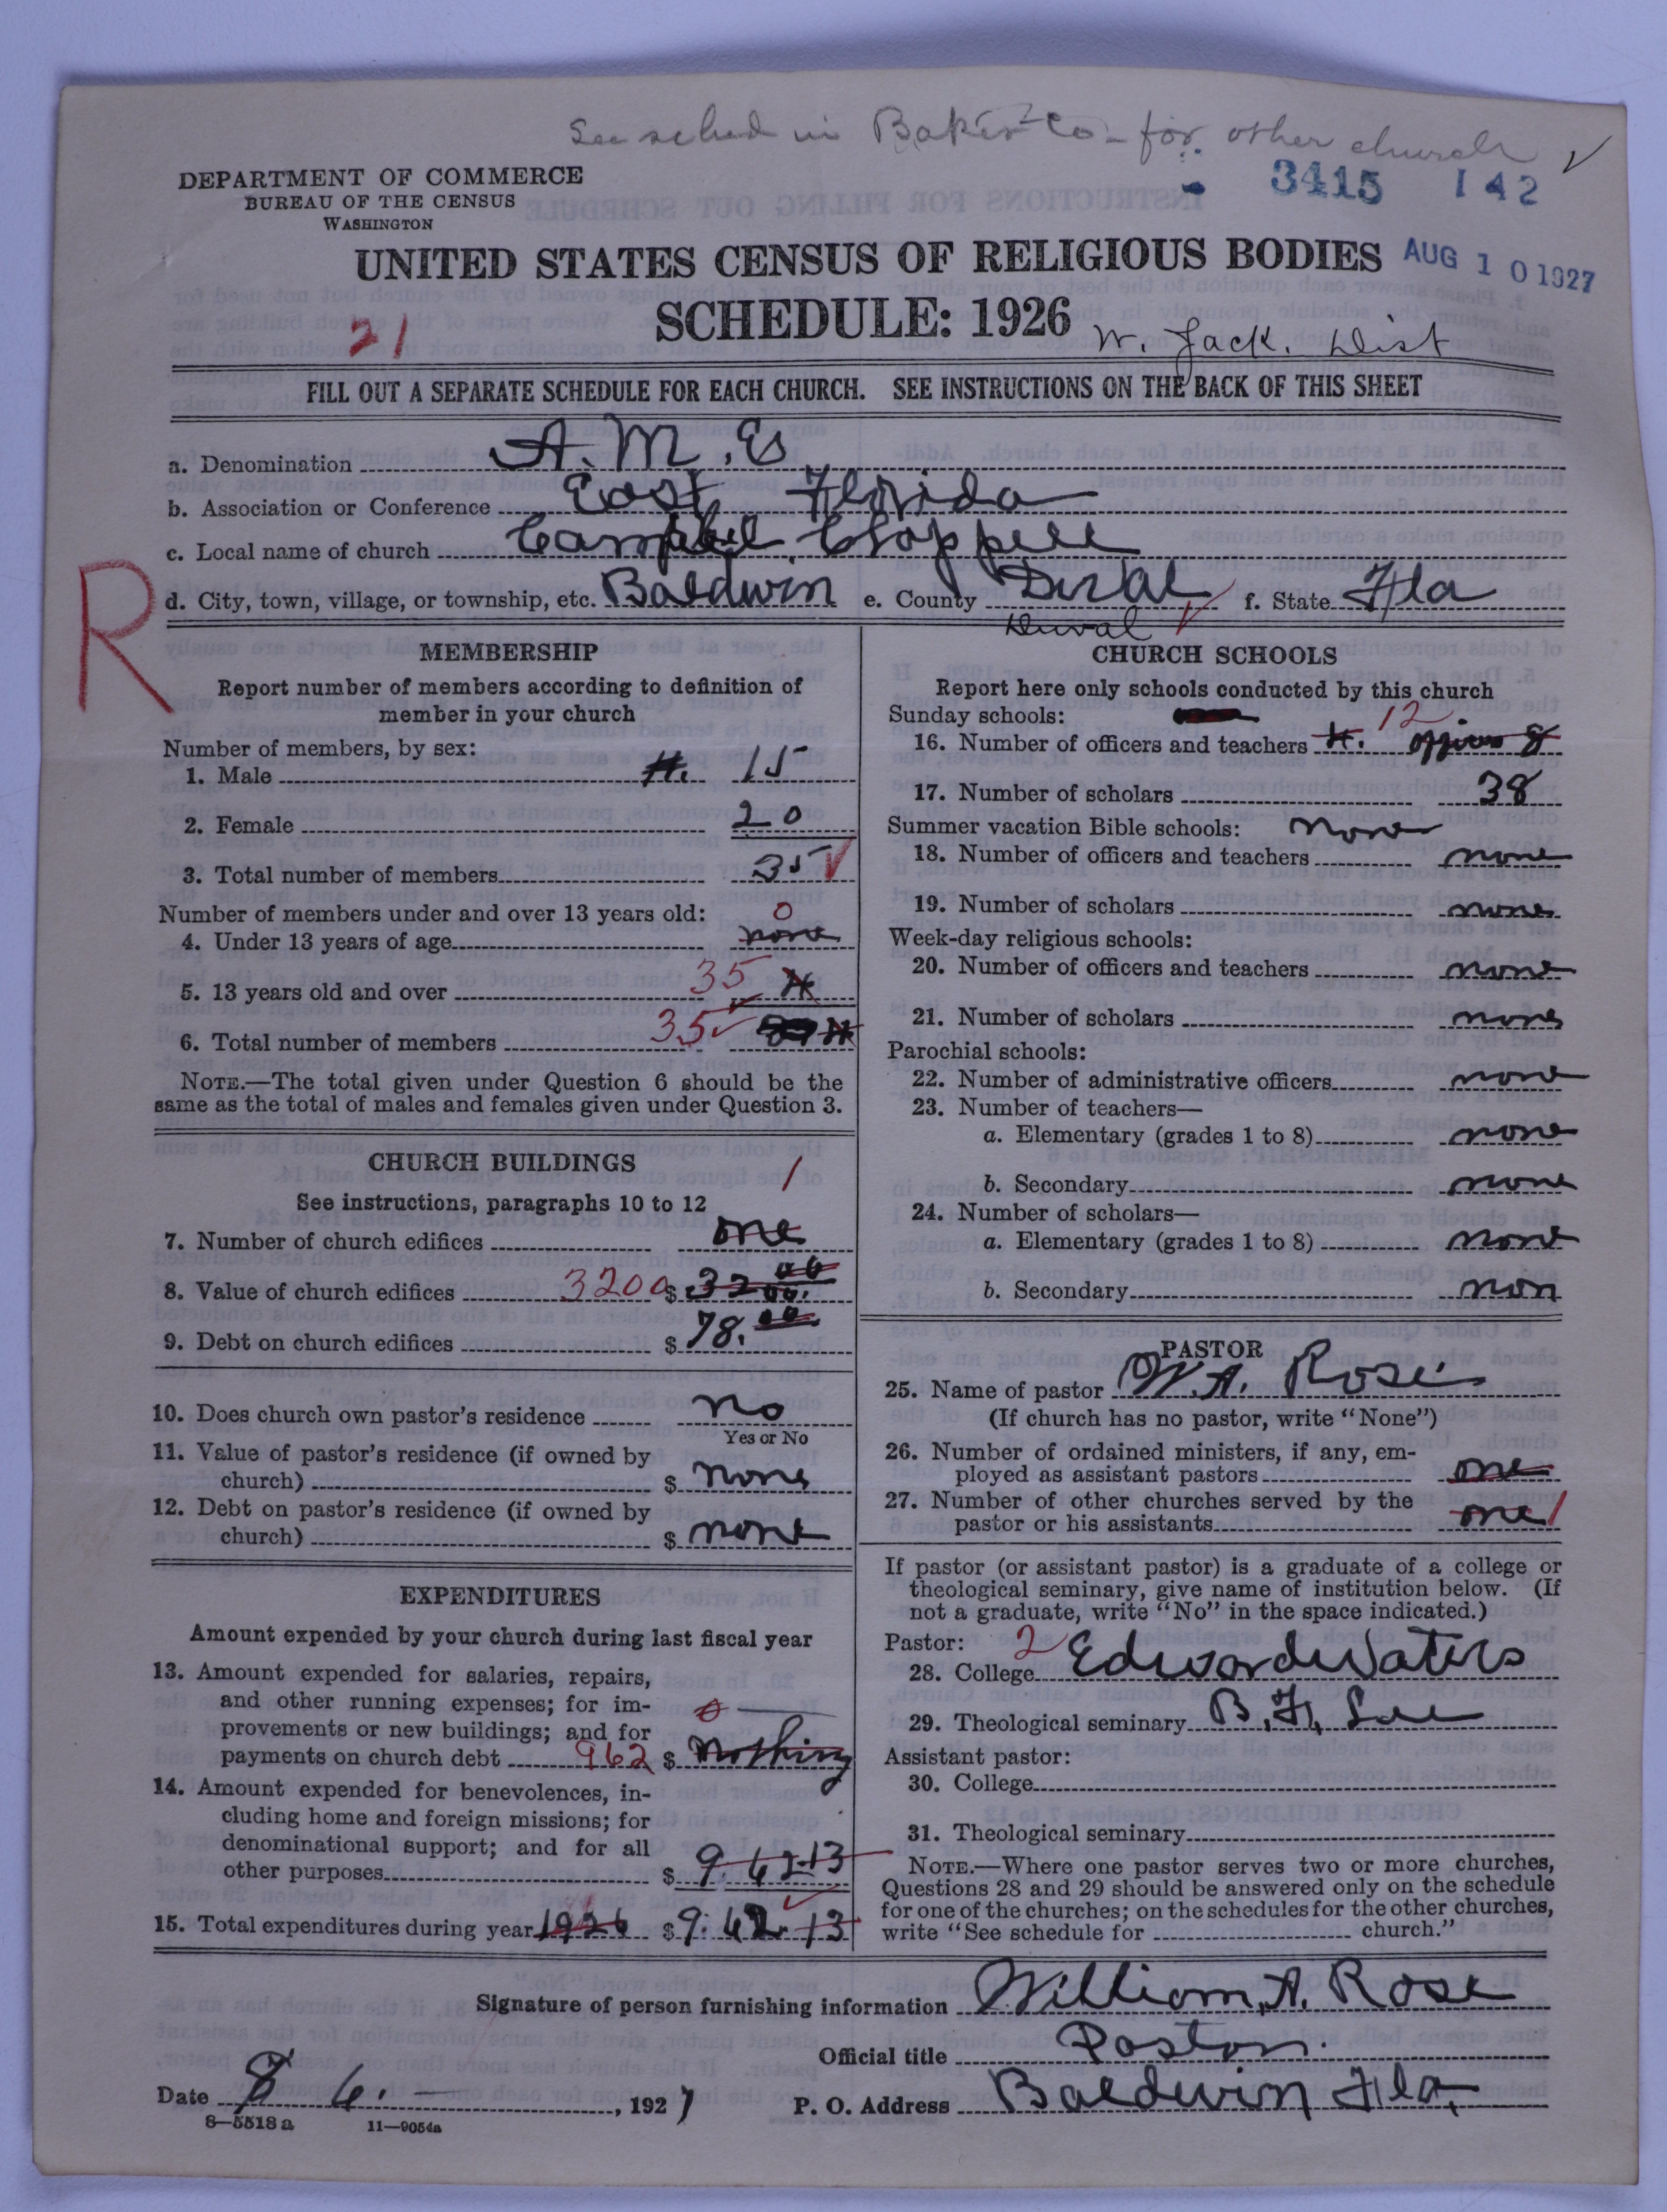 See sched in Baker Co - for other church ✓
DEPARTMENT OF COMMERCE
BUREAU OF THE CENSUS
WASHINGTON
3415 142
UNITED STATES CENSUS OF RELIGIOUS BODIES
AUG 10 1927
SCHEDULE: 1926
21
W. Jack. Dist
FILL OUT A SEPARATE SCHEDULE FOR EACH CHURCH. SEE INSTRUCTIONS ON THE BACK OF THIS SHEET
a. Denomination A. M. E
b. Association or Conference East Florida
c. Local name of church Campbell Chappell
R
d. City, town, village, or township, etc. Baldwin e. County Duval f. State Fla
Duval
MEMBERSHIP
Report number of members according to definition of
member in your church
Number of members, by sex:
1. Male 15
2. Female 20
3. Total number of members 35
Number of members under and over 13 years old:
4. Under 13 years of age none 0
5. 13 years old and over 35
6. Total number of members 35
NOTE.—The total given under Question 6 should be the
same as the total of males and females given under Question 3.
CHURCH BUILDINGS
See instructions, paragraphs 10 to 12
7. Number of church edifices one 1
8. Value of church edifices 3200 $ 3200.00
9. Debt on church edifices $ 78.00
10. Does church own pastor's residence no
Yes or No
11. Value of pastor's residence (if owned by
church) $ none
12. Debt on pastor's residence (if owned by
church) $ none
EXPENDITURES
Amount expended by your church during last fiscal year
13. Amount expended for salaries, repairs,
and other running expenses; for im-
provements or new buildings; and for
payments on church debt 962 $ nothing
14. Amount expended for benevolences, in-
cluding home and foreign missions; for
denominational support; and for all
other purposes $ 9.62.13
15. Total expenditures during year 1926 $ 9.62.13
CHURCH SCHOOLS
Report here only schools conducted by this church
Sunday schools:
16. Number of officers and teachers 12 officers 8
17. Number of scholars 38
Summer vacation Bible schools: none
18. Number of officers and teachers none
19. Number of scholars none
Week-day religious schools:
20. Number of officers and teachers none
21. Number of scholars none
Parochial schools:
22. Number of administrative officers none
23. Number of teachers—
a. Elementary (grades 1 to 8) none
b. Secondary none
24. Number of scholars—
a. Elementary (grades 1 to 8) none
b. Secondary non
PASTOR
25. Name of pastor W. A. Rose
(If church has no pastor, write "None")
26. Number of ordained ministers, if any, em-
ployed as assistant pastors one
27. Number of other churches served by the
pastor or his assistants one 1
If pastor (or assistant pastor) is a graduate of a college or
theological seminary, give name of institution below. (If
not a graduate, write "No" in the space indicated.)
Pastor: 2
28. College Edward Waters
29. Theological seminary B. F. Lee
Assistant pastor:
30. College
31. Theological seminary
NOTE.—Where one pastor serves two or more churches,
Questions 28 and 29 should be answered only on the schedule
for one of the churches; on the schedules for the other churches,
write "See schedule for church."
Signature of person furnishing information William A. Rose
Official title Pastor.
Date 8 6. , 1927 P. O. Address Baldwin Fla.
8—5518 a 11—9054a